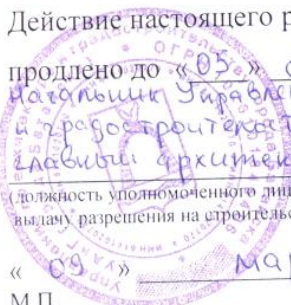 Действие настоящего р
продлено до «05»
начальник Управле
и градостроительст
главный архитек
(должность уполномоченного лиц
выдачу разрешения на строительс
«09» мар
М.П.